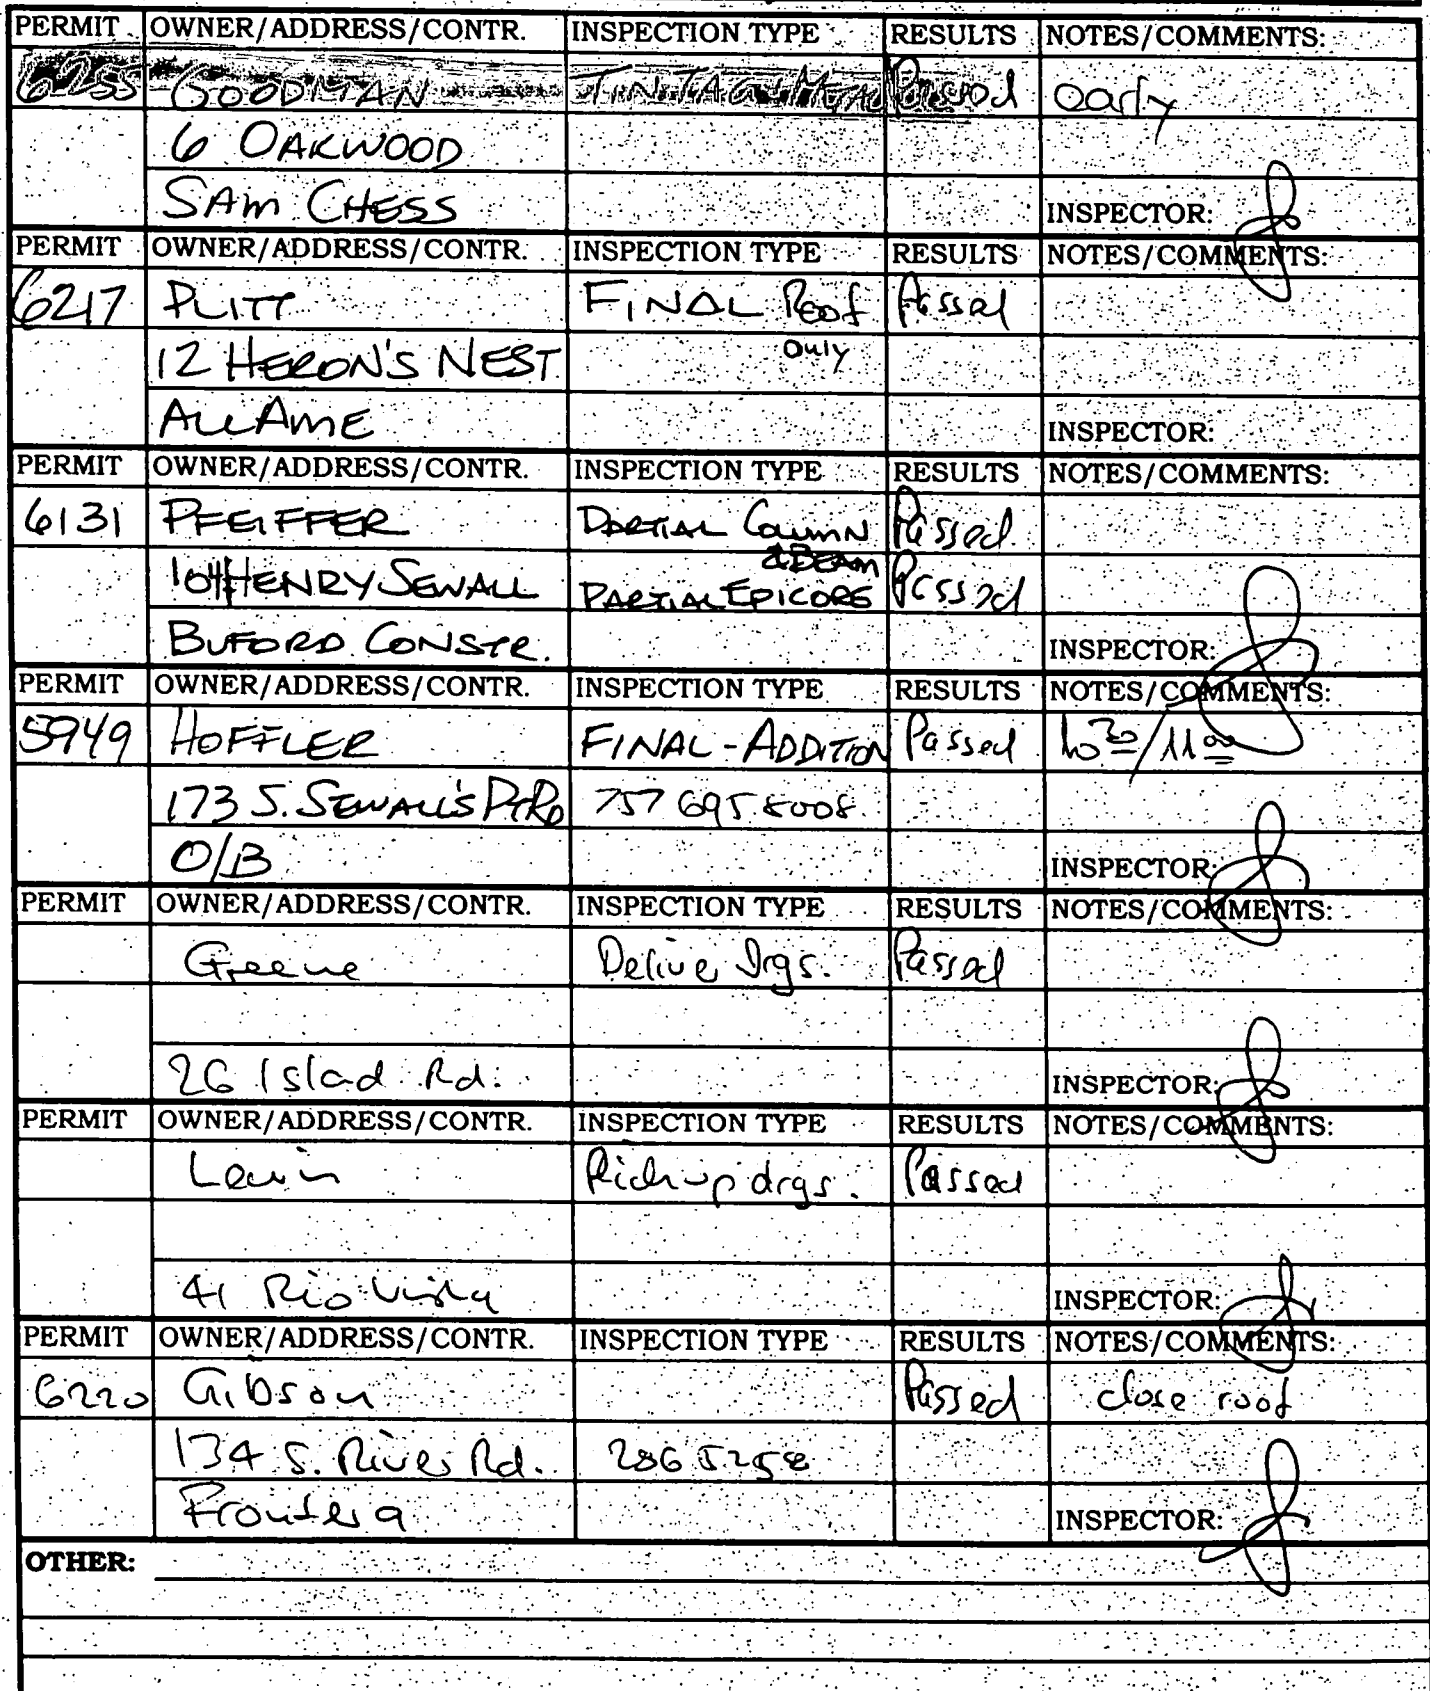 PERMIT OWNER/ADDRESS/CONTR. INSPECTION TYPE RESULTS NOTES/COMMENTS:
6255 GOODMAN TINTAG/METAL Passed early
6 OAKWOOD
SAM CHESS INSPECTOR:
PERMIT OWNER/ADDRESS/CONTR. INSPECTION TYPE RESULTS NOTES/COMMENTS:
6217 PLITT FINAL Roof Passed
12 HERON'S NEST only
ALLAME INSPECTOR:
PERMIT OWNER/ADDRESS/CONTR. INSPECTION TYPE RESULTS NOTES/COMMENTS:
6131 PFEIFFER PARTIAL COLUMN Passed
& BEAM
104 HENRY SEWALL PARTIAL EPICORE Passed
BUFORD CONSTR. INSPECTOR:
PERMIT OWNER/ADDRESS/CONTR. INSPECTION TYPE RESULTS NOTES/COMMENTS:
5949 HOFFLER FINAL - ADDITION Passed 10 30/11 00
173 S. SEWALL'S PT RD 757 695 8008
O/B INSPECTOR:
PERMIT OWNER/ADDRESS/CONTR. INSPECTION TYPE RESULTS NOTES/COMMENTS:
Greene Deliver drgs. Passed
26 Island Rd. INSPECTOR:
PERMIT OWNER/ADDRESS/CONTR. INSPECTION TYPE RESULTS NOTES/COMMENTS:
Lewin Pick-up drgs. Passed
41 Rio Vista INSPECTOR:
PERMIT OWNER/ADDRESS/CONTR. INSPECTION TYPE RESULTS NOTES/COMMENTS:
6220 Gibson Passed close roof
134 S. River Rd. 286 5258
Frontera INSPECTOR:
OTHER: